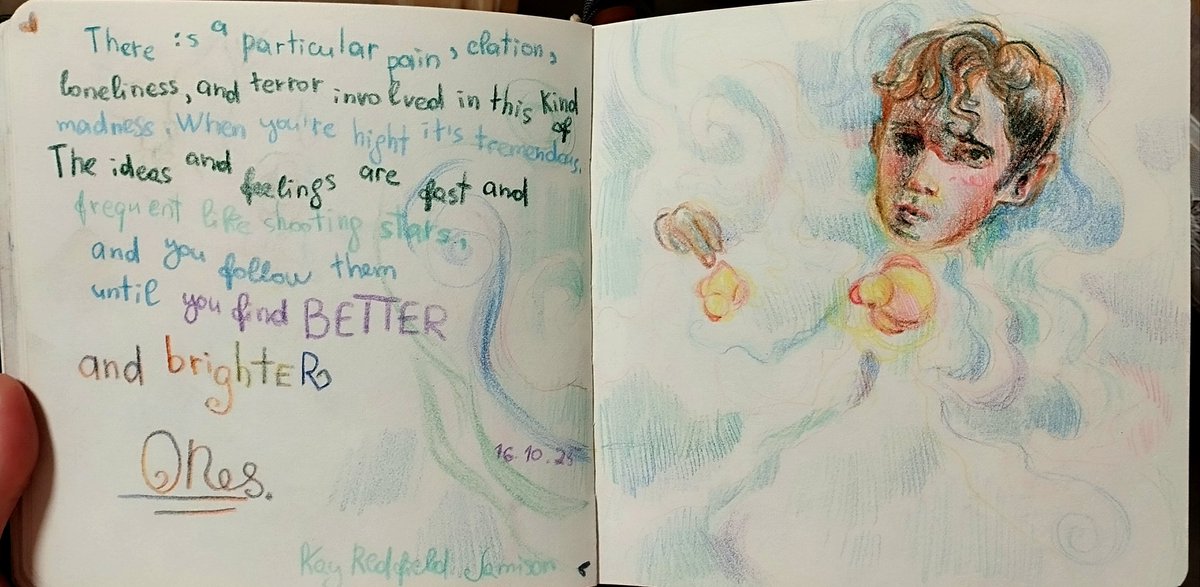 There is a particular pain, elation,
loneliness, and terror involved in this kind of
madness. When you're hight it's tremendous.
The ideas and feelings are fast and
frequent like shooting stars,
and you follow them
until you find BETTER
and brightER
ONes.
16.10.25
Kay Redfield Jamison